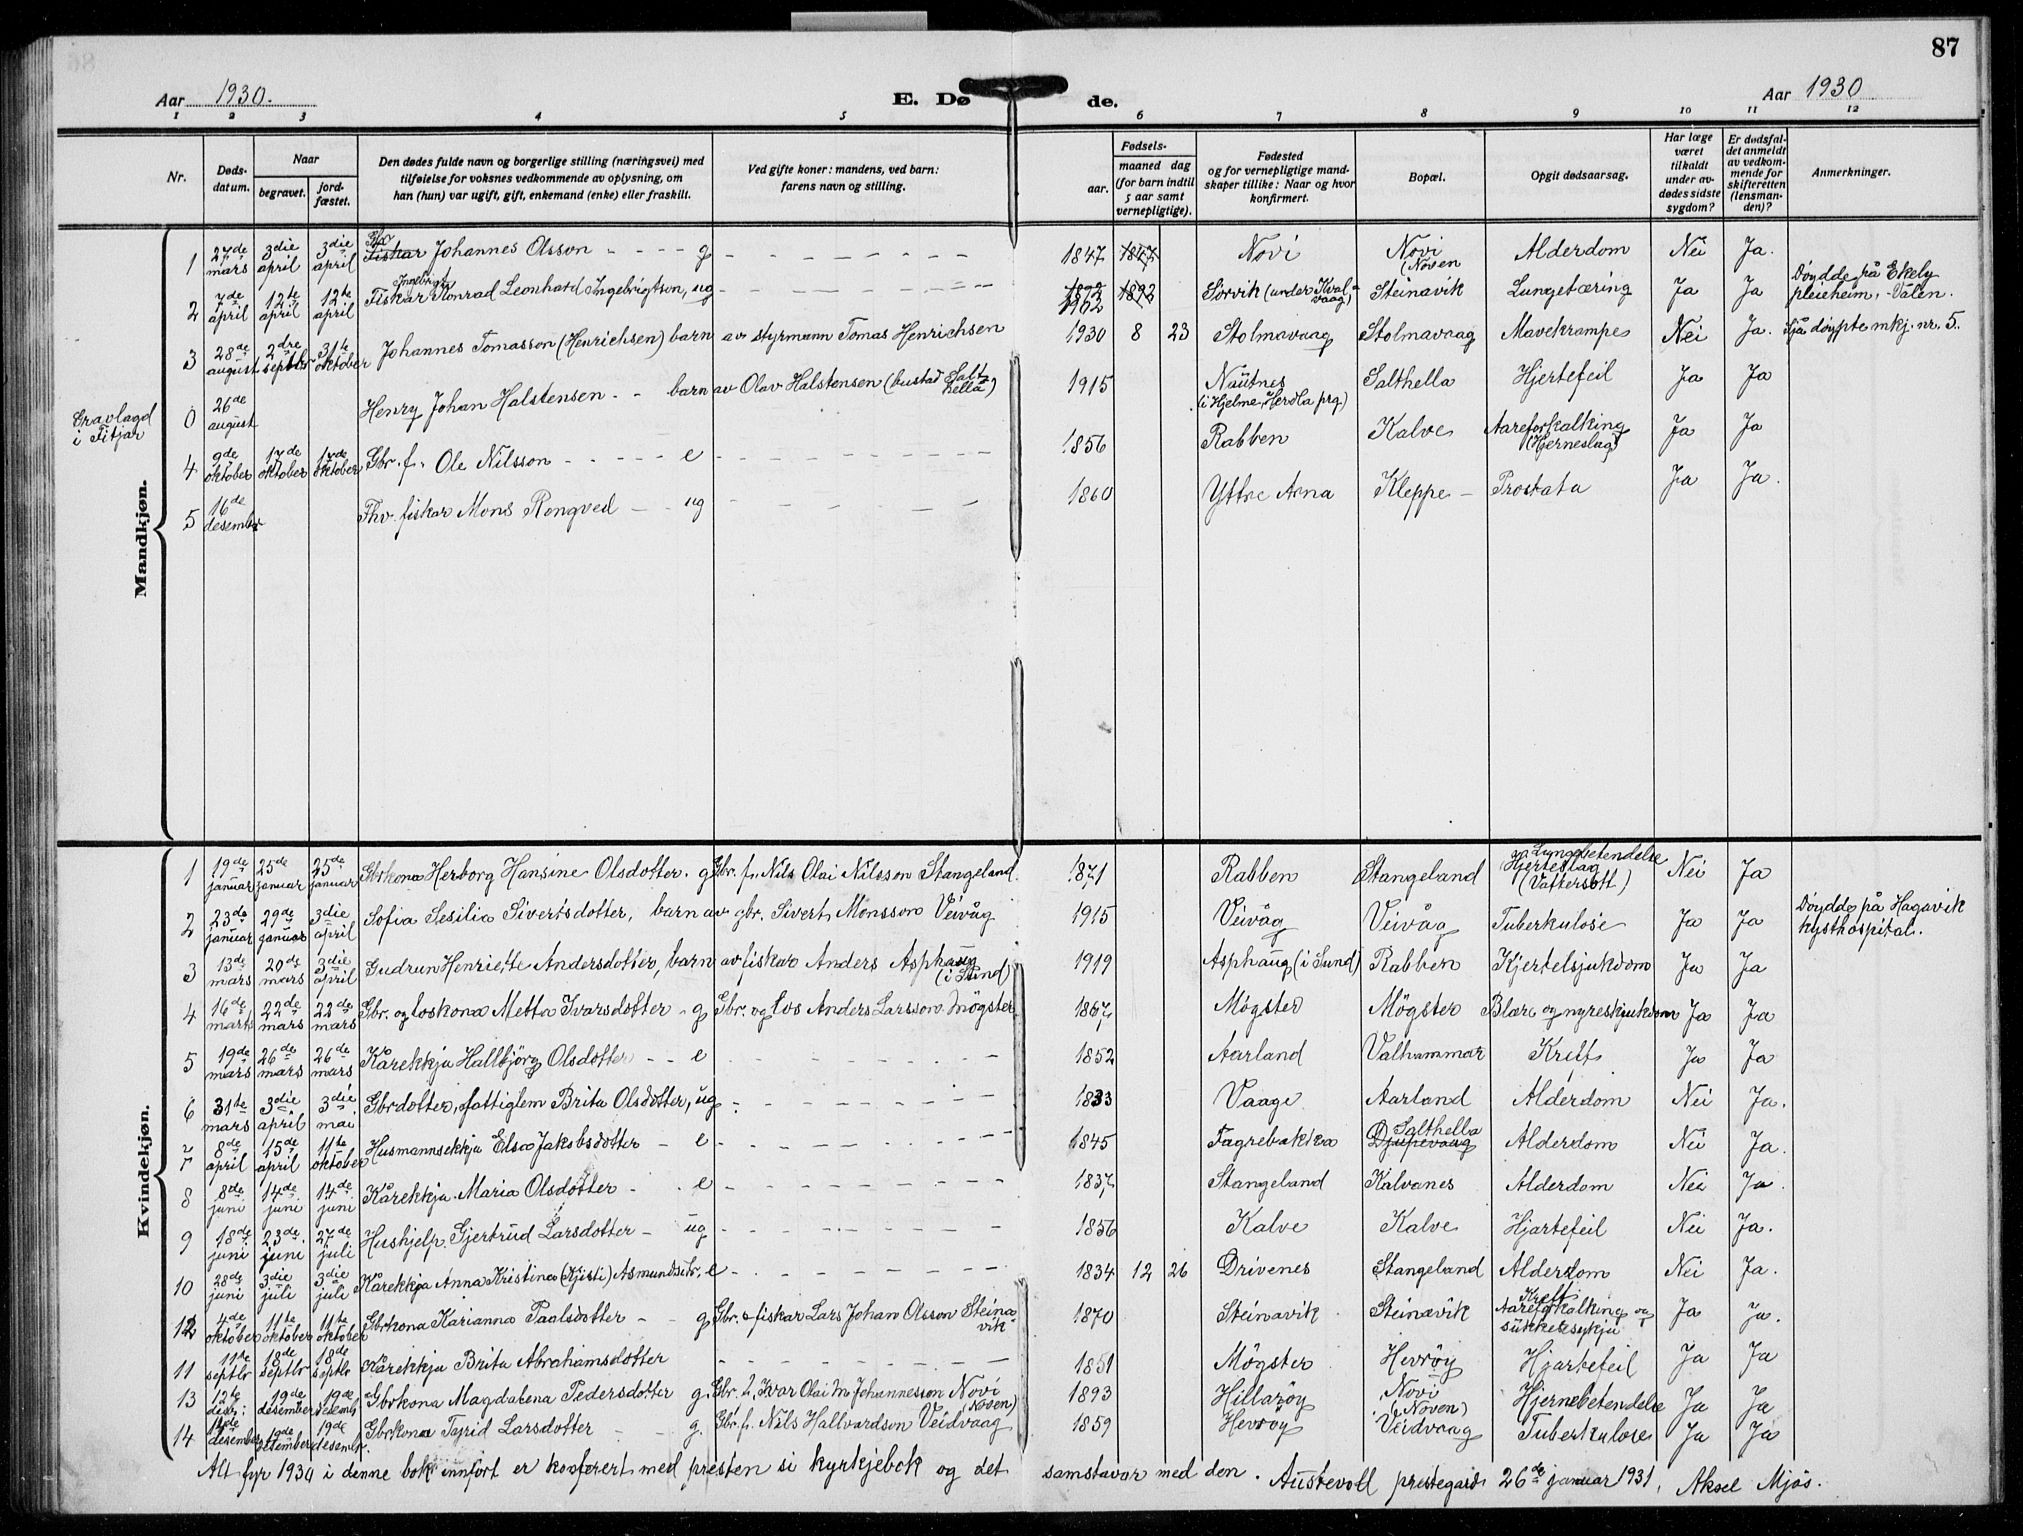 87
Aar 1930.
E. Døde.
Aar 1930
1 2 3 4 5 6 7 8 9 10 11 12
Nr.
Døds-datum.
Naar
begravet.
jord-fæstet.
Den dødes fulde navn og borgerlige stilling (næringsvei) med
tilføielse for voksnes vedkommende av oplysning, om
han (hun) var ugift, gift, enkemand (enke) eller fraskilt.
Ved gifte koner: mandens, ved barn:
farens navn og stilling.
Fødsels-
aar.
maaned dag
(for barn indtil
5 aar samt
vernepligtige).
Fødested
og for vernepligtige mand-
skaper tillike: Naar og hvor
konfirmert.
Bopæl.
Opgit dødsaarsag.
Har læge
været
tilkaldt
under av-
dødes sidste
sygdom?
Er dødsfal-
det anmeldt
av vedkom-
mende for
skifteretten
(lensman-
den)?
Anmerkninger.
Mandkjøn.
1 27de mars 3die april 3die april Gbr Fiskar Johannes Olsson - - - - g 1847 1847 Novi Novi (Noven Alderdom Nei Ja.
2 7de april 12te april 12te april Fiskar Ingebrigt Konrad Leonhard Ingebrigtson, ug 1892 Sørvik (under Kval-vaag) Steinavik Lungetæring Ja Ja Døydde på Ekely pleieheim, - Valen.
3 28de august 2dre septbr 31te oktober Johannes Tomasson (Henrichsen) barn av styrmann Tomas Henrichsen 1930 8 23 Stolmavaag Stolmavaag Mavekrampe Nei Ja. Sjå døypte mkj. nr. 5.
Gravlagd i Fitjar 0 26de august Henry Johan Halstensen - - barn av Olav Halstensen (bustad Salthella) 1915 Nautnes (i Hjelme, Herdla prg.) Salthella Hjertefeil Ja Ja
4 9de oktober 17de oktober 17de oktober Gbr. f. Ole Nilsson - - - - - e 1856 Rabben Kalve Aareforkalking (Hjerneslag) Ja Ja
5 16de desembr Fhv. fiskar Mons Rongved - - ug 1860 Yttre Arna Kleppe - Prostata Ja Ja.
Kvindekjøn.
1 19de januar 25de januar 25de januar Gbrkona Herborg Hansine Olsdotter. g Gbr. f. Nils Olai Nilsson Stangeland. 1871 Rabben Stangeland Lungebetendelse Hjerteslag (Vattersott) Nei Ja
2 23de januar 29de januar 3die april Sofia Sesilia Sivertsdotter, barn av gbr. Sivert Monsson Veivåg 1915 Veivåg Veivåg Tuberkulose Ja Ja Døydde på Hagavik kysthospital.
3 13de mars 20de mars 3die april Gudrun Henriette Andersdotter, barn av fiskar Anders Asphaug (i Sund) 1919 Asphaug (i Sund) Rabben Kjertelsjukdom Ja Ja
4 16de mars 22de mars 22de mars Gbr. og loskona Metta Ivarsdotter - g Gbr. og los Anders Larsson Møgster 1867 Møgster Møgster Blære og nyresjukdom Ja Ja
5 19de mars 26de mars 26de mars Kårekkja Hallbjørg Olsdotter - - e 1852 Aarland Valhammar Kreft Ja Ja
6 31te mars 3die april 3die mai Gbrdotter, fattiglem Brita Olsdotter, ug 1833 Vaage Aarland Alderdom Nei Ja.
7 8de april 15de april 11te oktober Husmannsekkja Elsa Jakobsdotter - e 1845 Fagrebakka Salthella Djupevaag Alderdom Nei Ja.
8 8de juni 14de juni 14de juni Kårekkja Maria Olsdotter - - e 1837 Stangeland Kalvanes Alderdom Nei Ja.
9 18de juni 23de juni 27de juli Hushjelp. Gjertrud Larsdotter - ug 1856 Kalve Kalve Hjartefeil Nei Ja.
10 28de juni 3die juli 3die juli Kårekkja Anna Kristina (Kjisti) Asmundsdtr. e 1834 12 26 Drivenes Stangeland Alderdom Nei Ja.
12 4de oktober 11te oktober 11te oktober Gbrkona Karianna Paalsdotter - - g Gbr. & fiskar Lars Johan Olsson Steinavik 1870 Steinavik Steinavik Kreft. Aareforkalking og sukkersykju Ja Ja.
11 11te septbr 18de septbr 18de septbr Kårekkja Brita Abrahamsdotter 1851 Møgster Hevrøy Hjartefeil Ja Ja
13 12te desbr: 19de desember 19de desemb. Gbrkona Magdalena Pedersdotter g. Gbr. f. Ivar Olai M. Johannesson Novi (Noven) 1893 Hillazøy Novi (Noven) Hjernebetendelse Ja Ja
14 14de desember 19de desember 19de desembr. Gbrkona Tagrid Larsdotter - - g. Gbr. f. Nils Hallvardson Veidvaag 1859 Hevrøy Veidvaag Tuberkulose Ja Ja
Alt fyr 1930 i denne bok innført er konferert med presten si kyrkjebok og det samstavar med den. Austevoll prestegard 26de januar 1931. Aksel Mjøs.